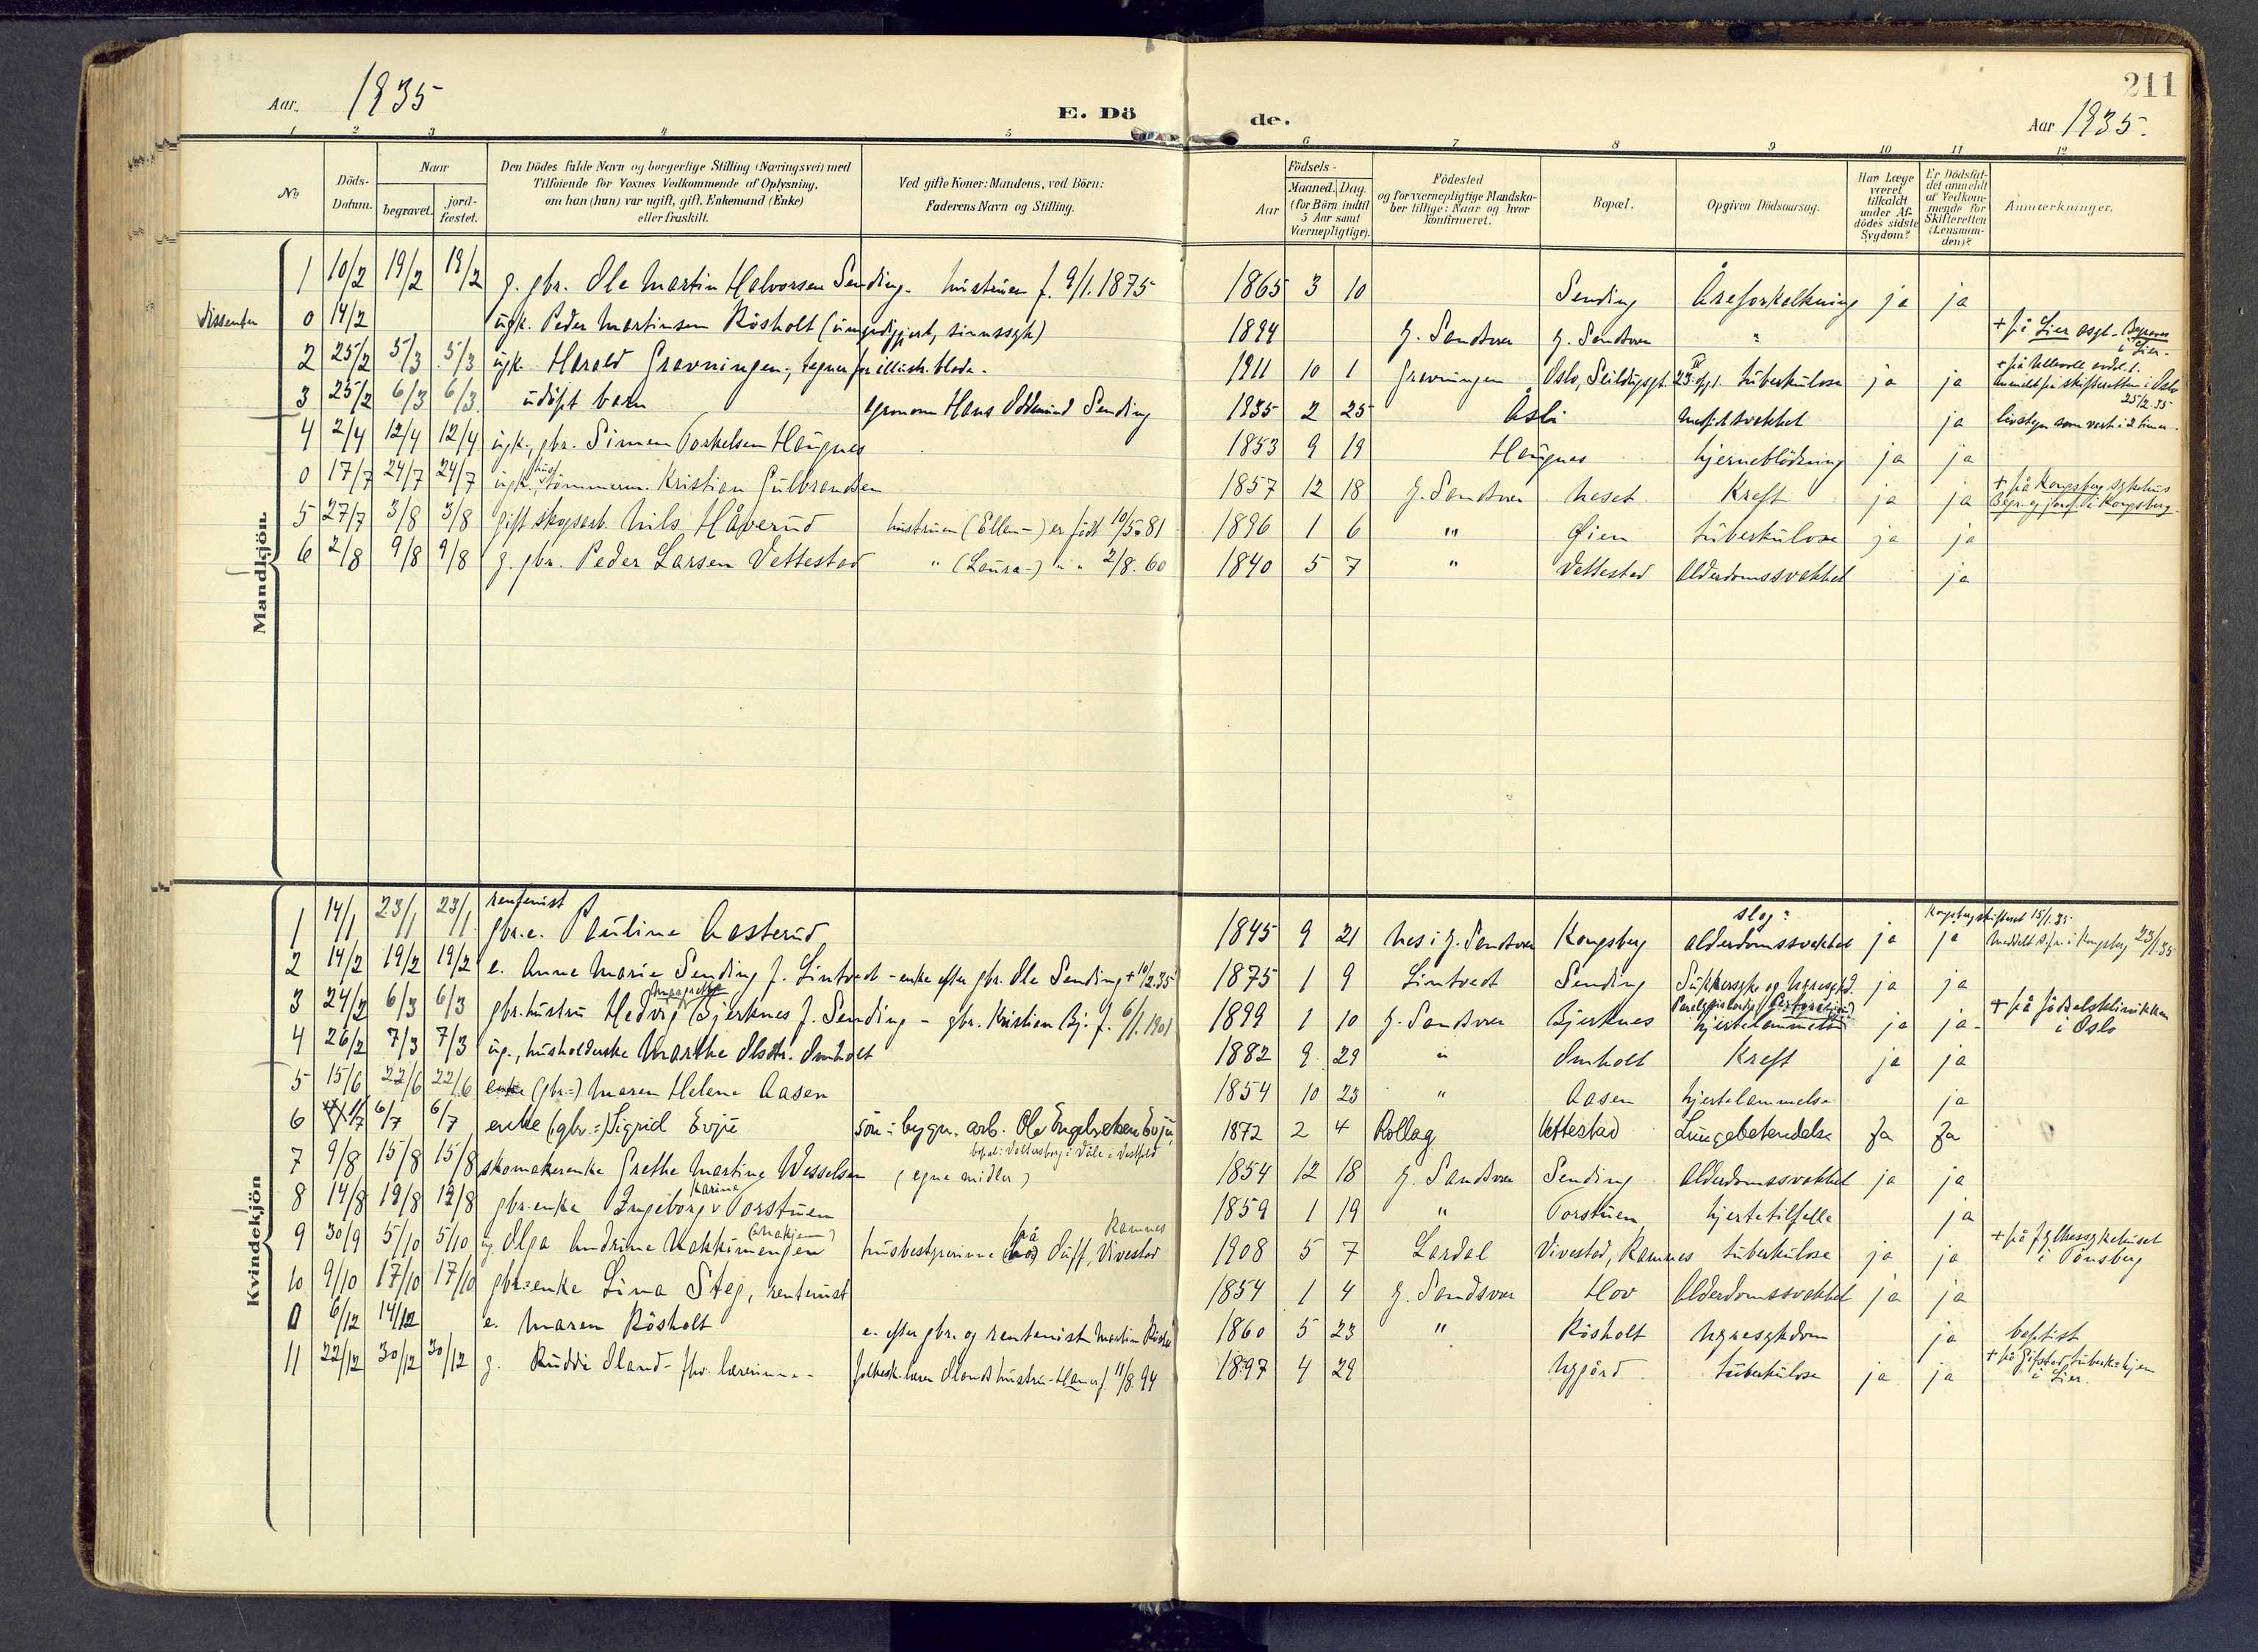 211
Aar. 1935
E. Dö de.
Aar 1935.
1 2 3 4 5 6 7 8 9 10 11 12
No
Döds-Datum.
Naar
begravet. jord-fæstet.
Den Dödes fulde Navn og borgerlige Stilling (Næringsvei) med
Tilföiende for Voxnes Vedkommende af Oplysning,
om han (hun) var ugift, gift, Enkemand (Enke)
eller fraskilt.
Ved gifte Koner: Mandens, ved Börn:
Faderens Navn og Stilling.
Födsels-
Aar Maaned. Dag.
(for Börn indtil
5 Aar samt
Værnepligtige).
Födested
og for værnepligtige Mandska-
ber tillige: Naar og hvor
konfirmeret.
Bopæl.
Opgiven Dödsaarsag.
Har Læge
været
tilkaldt
under Af-
dödes sidste
Sygdom?
Er Dödsfal-
det anmeldt
af Vedkom-
mende for
Skifteretten
(Lensman-
den)?
Anmærkninger.
Mandkjön.
1 10/2 19/2 19/2 g. gbr. Ole Martin Halvorsen Sending. hustruen f. 9/1. 1875 1865 3 10 Sending Åreforkalkning ja ja
Dissenter 0 14/2 ugk. Peder Martinsen Rösholt (umyndiggjort, sinnssyk) 1894 Y. Sandsvær Y. Sandsvær " + på Lier asyl. Begraves i Lier.
2 25/2 5/3 5/3 ugk. Harald Gravningen, tegner for illustr. blade. 1911 10 1 Gravningen Oslo, 23 tuberkulose ja ja + på Ullevoll anmeldt på skifteretten i Oslo 25/2.35
3 25/2 6/3 6/3 udöpt barn agronom Hans Oddmund Sending 1935 2 25 Åsli Medfödt svakhet ja livstegn som varte i 2 timer.
4 2/4 12/4 12/4 ugk., gbr. Simen Torkelsen Haugnes 1853 9 19 Haugnes hjerneblödning ja ja
0 17/7 24/7 24/7 ugk., tömmerm. Kristian Gulbrandsen 1857 12 18 Y. Sandsvær Neset Kreft ja ja + på Kongsberg sykehus Begr. og jordf. i Kongsberg.
5 27/7 3/8 3/8 gift skogsarb. Nils Håverud hustruen (Ellen -) er födt 10/5.81 1896 1 6 " Øien tuberkulose ja ja
6 2/8 9/8 9/8 g. gbr. Peder Larsen Vettestad " (Laura -) " " 2/8.60 1840 5 7 " Vettestad Alderdomssvakhet ja
Kvindekjön
1 14/1 23/1 23/1 rentenist gbr.e. Pauline Aasterud 1845 9 21 Nes i Y. Sandsvær Kongsberg slag? alderdomssvakhet ja ja Kongsberg skifterett 15/1.35 Meddelt s.pr. i Kongsberg 23/1.35
2 14/2 19/2 19/2 e. Anne Marie Sending f. Lintvedt - enke efter gbr. Ole Sending + 10/2.35 1875 1 9 Lintvedt Sending Sukkersyke og Nyresykd. ja ja
3 24/2 6/3 6/3 gbr. hustru Hedvig Margrethe Bjerknes f. Sending - gbr. Kristian Bj. f. 6/1.1901 1899 1 10 Y. Sandsvær Bjerknes hjertelammelse ja ja + på födselsklinikken i Oslo
4 26/2 7/3 7/3 ug., husholderske Marthe Olsdtr. Omholt 1882 9 29 " Omholt Kreft ja ja
5 15/6 22/6 22/6 enke (gbr=) Maren Helene Aasen 1854 10 23 " Aasen hjertelammelse ja
6 1/7 6/7 6/7 enke (gbr=) Sigrid Evju sön: bygn. arb. Ole Engebretsen Evju, 1872 2 4 Rollag Vettestad Lungebetendelse Ja Ja
7 9/8 15/8 15/8 skomakerenke Grethe Martine Wesselsen (egne midler) 1854 12 18 Y. Sandsvær Sending Alderdomssvakhet ja ja
8 14/8 19/8 19/8 gbr.enke Ingeborg Karine Torstuen 1859 1 19 " Torstuen hjertetilfelle ja
9 30/9 5/10 5/10 ug. Olga Andrine Nakkimengen husbestyrerinne (hos) på Duff, Vivestad Ramnes 1908 5 7 Lardal Vivestad, Ramnes tuberkulose ja ja + på fylkessykehuset i Tönsberg
10 9/10 17/10 17/10 gbr=enke Lina Steg, rentenist 1854 1 4 Y. Sandsvær Hov Alderdomssvakhet ja ja
0 6/12 14/12 e. Maren Rösholt e. efter gbr. og rentenist Martin Rösholt 1860 5 23 " Rösholt Nyresykdom ja baptist
11 22/12 30/12 30/12 g. Ruddi Oland - fhv. lærerinne - folkesk. lærer Olands hustru - Han er f. 11/8.94 1897 4 29 Nygård tuberkulose ja ja + på Gifstad tuberk=hjem i Lier.